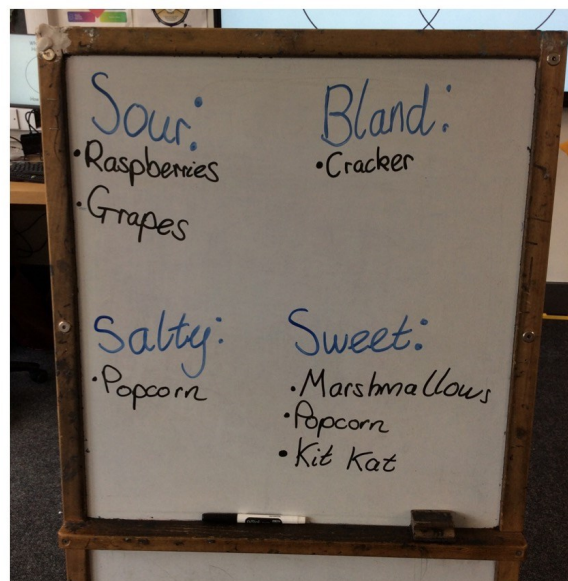 Sour:
• Raspberries
• Grapes
Bland:
• Cracker
Salty:
• Popcorn
Sweet:
• Marshmallows
• Popcorn
• Kit Kat